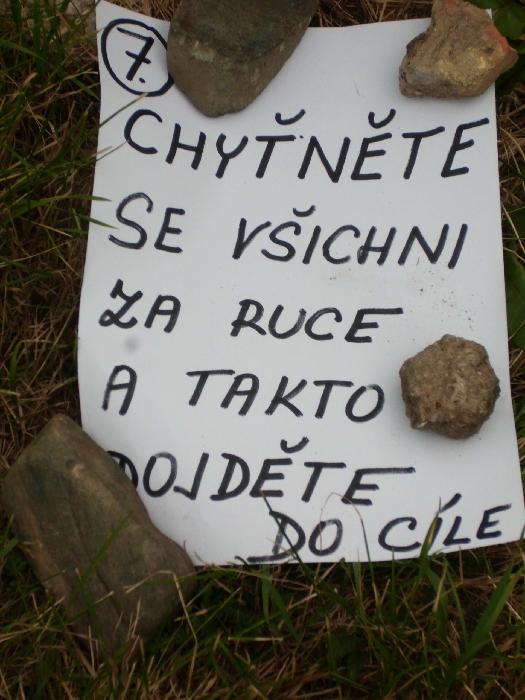 7.
CHYŤNĚTE
SE VŠICHNI
ZA RUCE
A TAKTO
DOJDĚTE
DO CÍLE